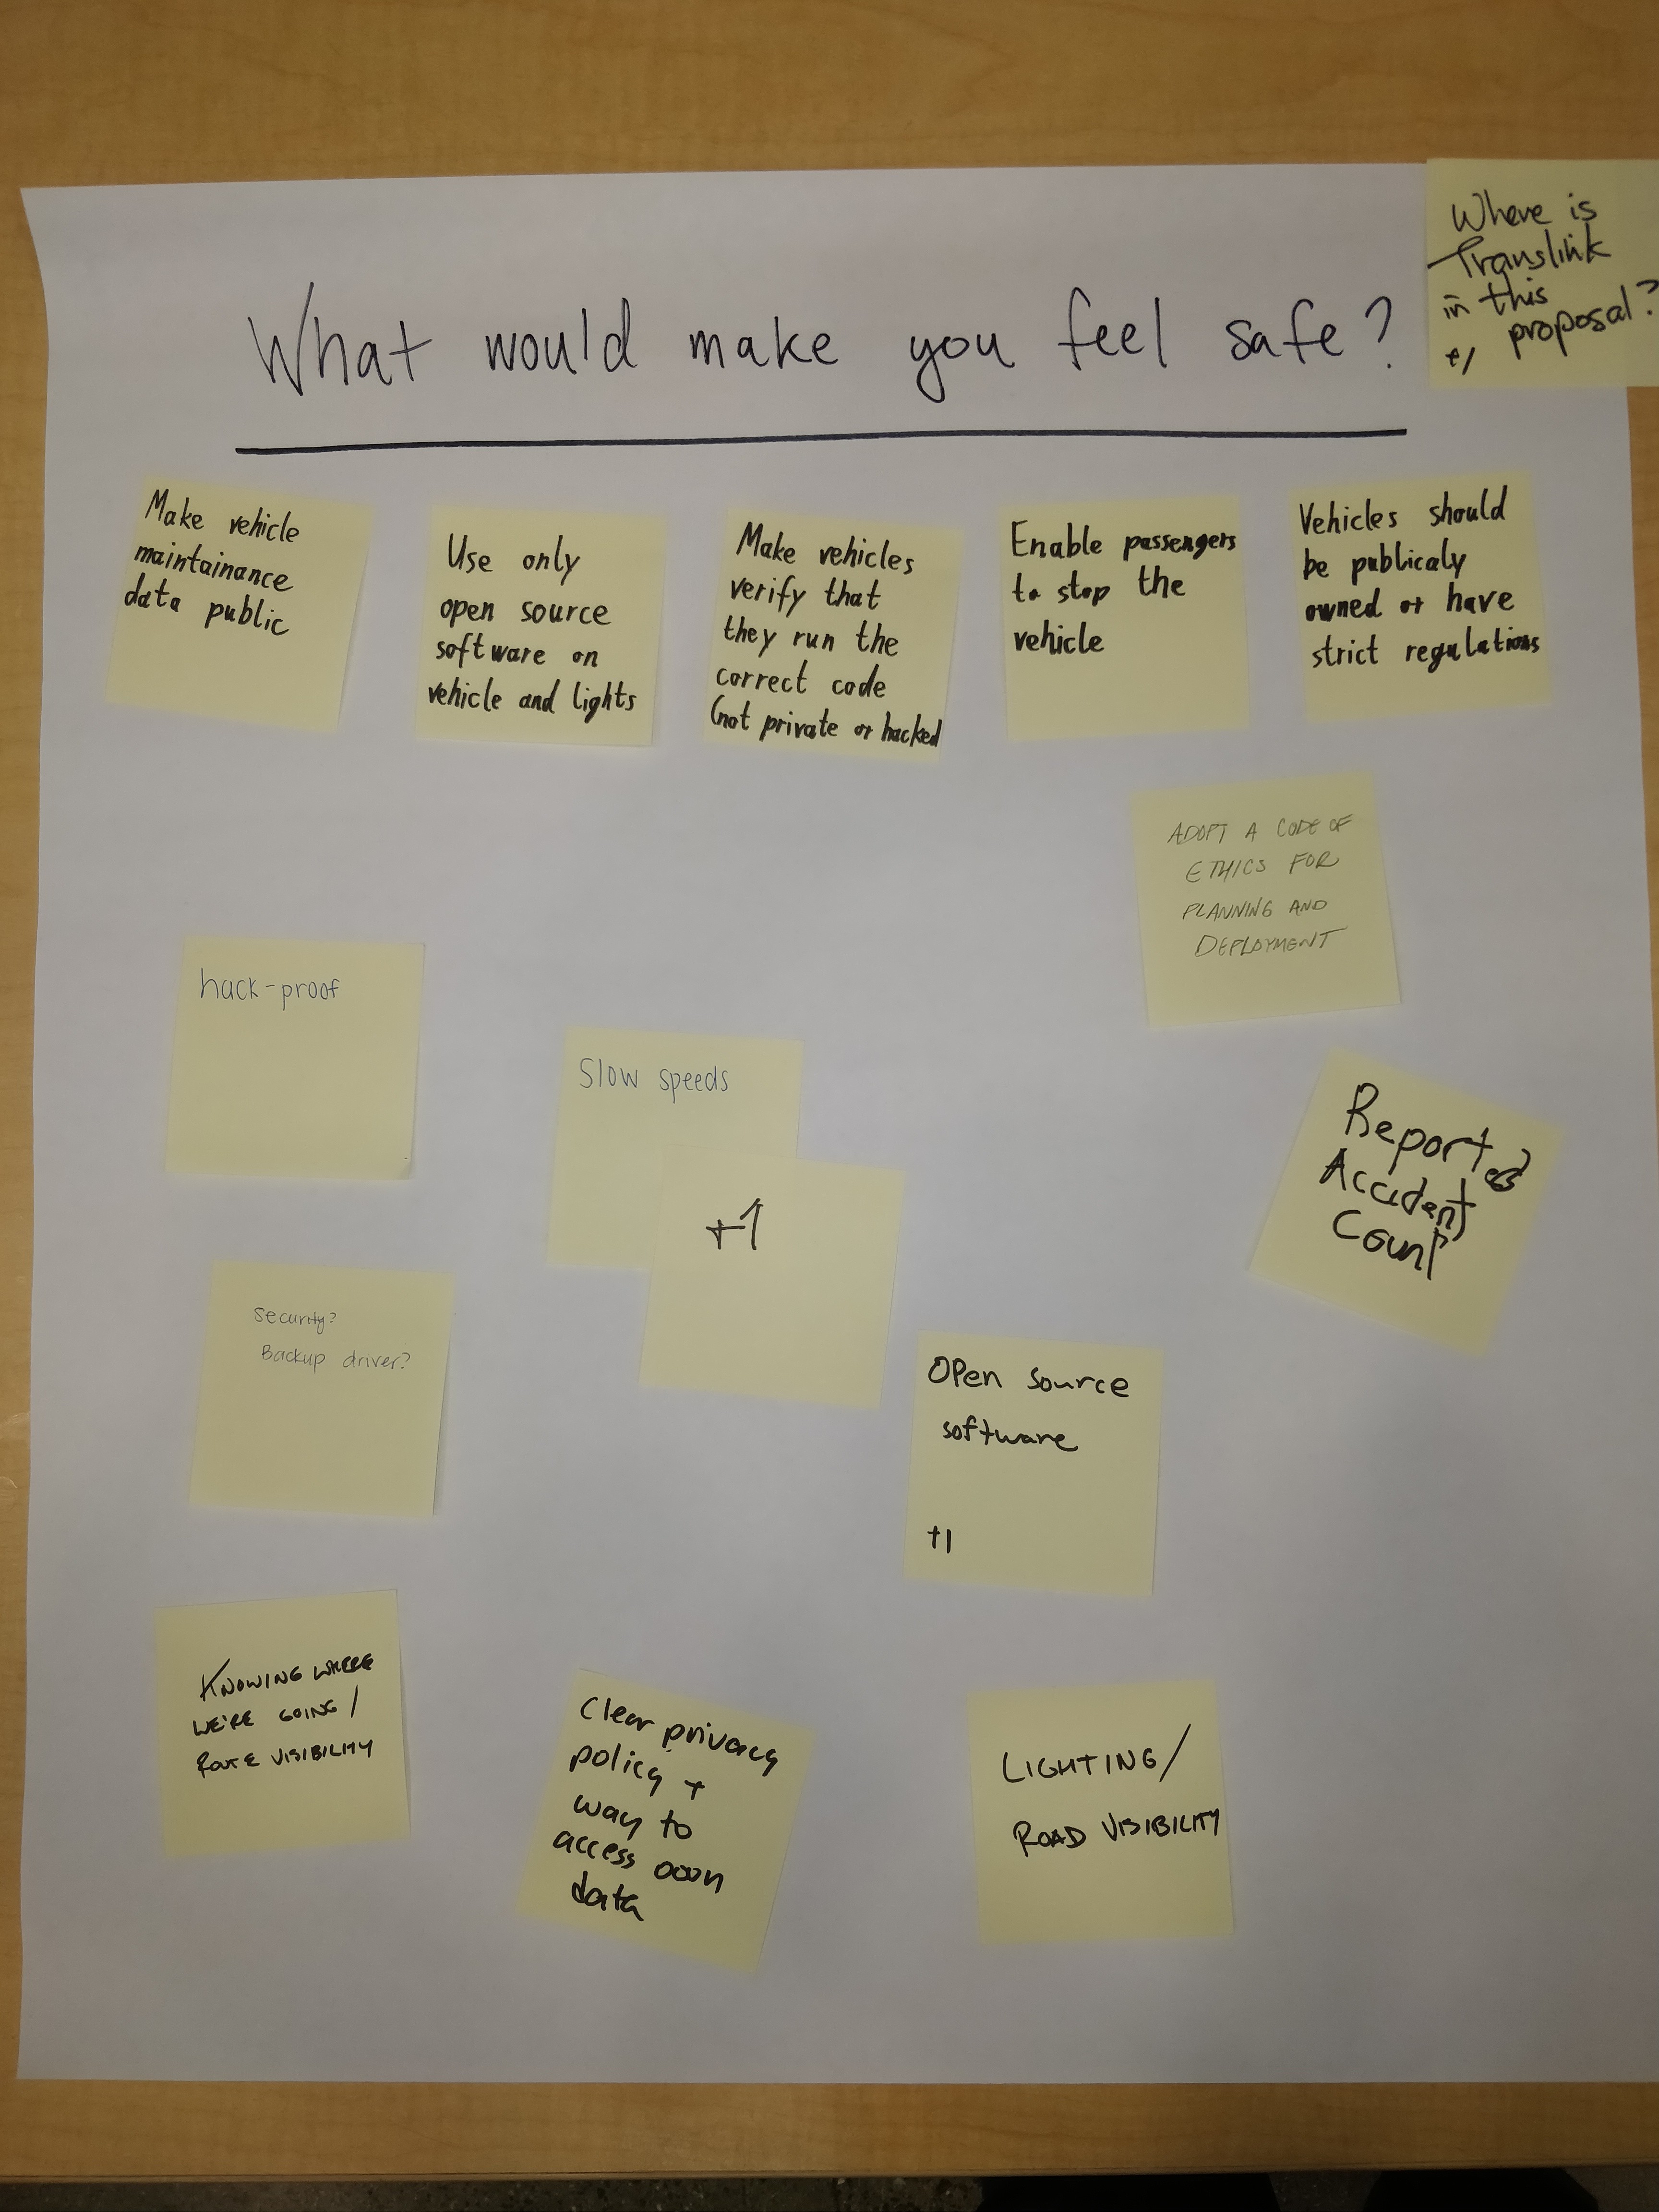 What would make you feel safe?
Where is
Translink
in this
proposal?
Make vehicle
maintainance
data public
Use only
open source
software on
vehicle and lights
Make vehicles
verify that
they run the
correct code
(not private or hacked
Enable passengers
to stop the
vehicle
Vehicles should
be publicaly
owned or have
strict regulations
ADOPT A CODE OF
ETHICS FOR
PLANNING AND
DEPLOYMENT
hack-proof
Slow speeds
+1
Reported
Accident
Count
security?
Backup driver?
Open source
software
+1
KNOWING WHERE
WE'RE GOING /
ROUTE VISIBILITY
Clear privacy
policy +
way to
access own
data
LIGHTING/
ROAD VISIBILITY